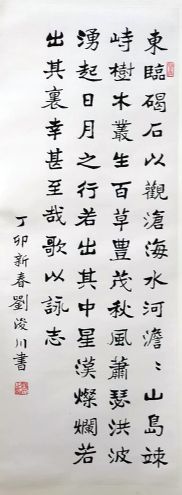 東臨碣石以觀滄海水河澹〻山島竦
峙樹木叢生百草豐茂秋風蕭瑟洪波
湧起日月之行若出其中星漢燦爛若
出其裏幸甚至哉歌以詠志
丁卯新春劉浚川書